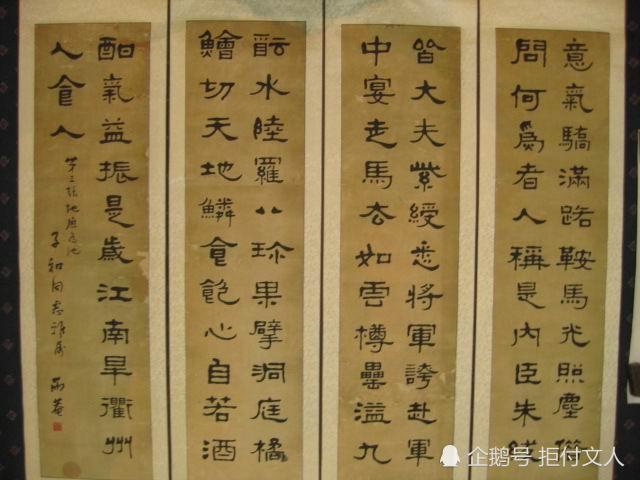 意氣驕滿路鞍馬光照塵借
問何爲者人稱是內臣朱紱
皆大夫紫綬悉將軍誇赴軍
中宴走馬去如雲樽罍溢九
醖水陸羅八珎果擘洞庭橘
鱠切天地鱗食飽心自若酒
酣氣益振是歲江南旱衢州
人食人
第三張地應為池
子和同志雅屬
菴
企鹅号 拒付文人